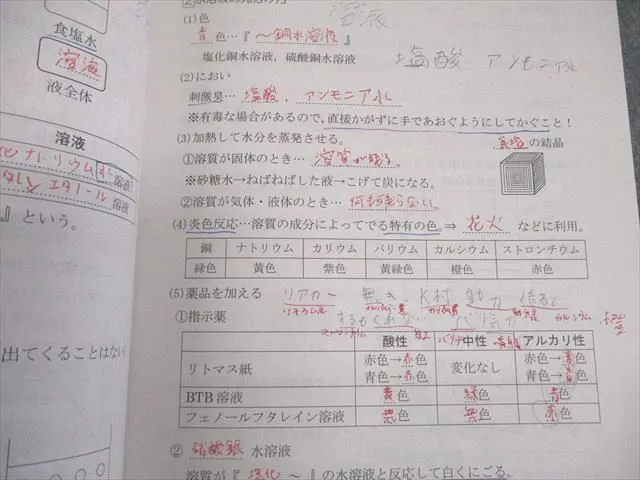 食塩水
溶液
液全体
溶液
ナトリウム 溶液
エタノール 溶液
』という。
出てくることはない
溶液
(1)色
青色…『～銅水溶液』
塩化銅水溶液，硫酸銅水溶液
塩酸 アンモニア水
(2)におい
刺激臭…塩酸，アンモニア水
※有毒な場合があるので，直接かがずに手であおぐようにしてかぐこと！
(3)加熱して水分を蒸発させる。
食塩の結晶
①溶質が固体のとき…溶質が残る。
※砂糖水→ねばねばした液→こげて炭になる。
②溶質が気体・液体のとき…何も残らない。
(4)炎色反応…溶質の成分によってでる特有の色。⇒ 花火 などに利用。
銅 ナトリウム カリウム バリウム カルシウム ストロンチウム
緑色 黄色 紫色 黄緑色 橙色 赤色
(5)薬品を加える
リアカー 無き K村 動力 借ると
①指示薬
するもくれない 馬力
ストロンチウム
酸性 中性 アルカリ性
リトマス紙 赤色→赤色 変化なし 赤色→青色
青色→赤色 青色→青色
BTB溶液 黄色 緑色 青色
フェノールフタレイン溶液 無色 無色 赤色
② 硝酸銀 水溶液
溶質が『塩化～』の水溶液と反応して白くにごる。